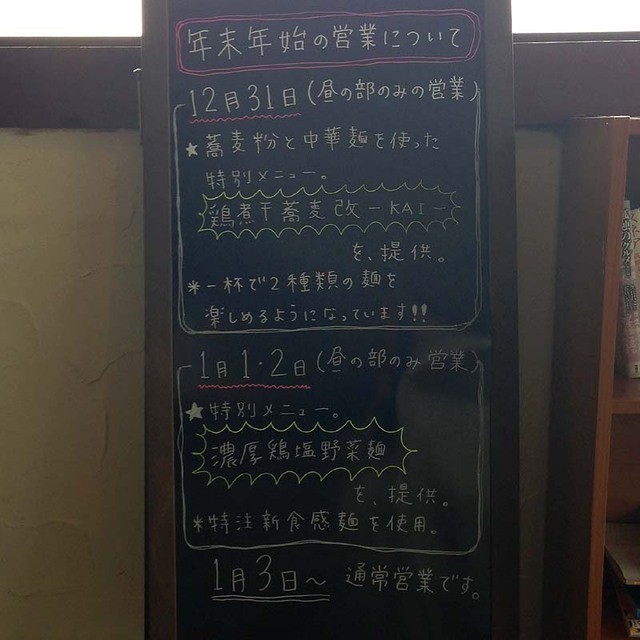 年末年始の営業について
12月31日(昼の部のみの営業)
★蕎麦粉と中華麺を使った
特別メニュー。
鶏煮干蕎麦改-KAI-
を、提供。
*一杯で2種類の麺を
楽しめるようになっています!!
1月1・2日(昼の部のみ営業)
★特別メニュー。
濃厚鶏塩野菜麺
を、提供。
*特注新食感麺を使用。
1月3日〜 通常営業です。